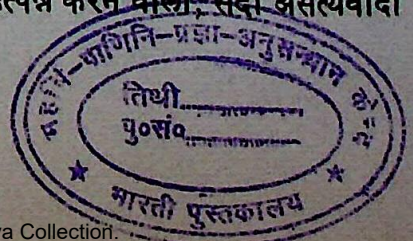 त्पन्न करने वाला, सदा असत्यवादी
महर्षि-पाणिनि-प्रज्ञा-अनुसन्धान केन्द्र
तिथी
पु०सं०
भारती पुस्तकालय
va Collection.